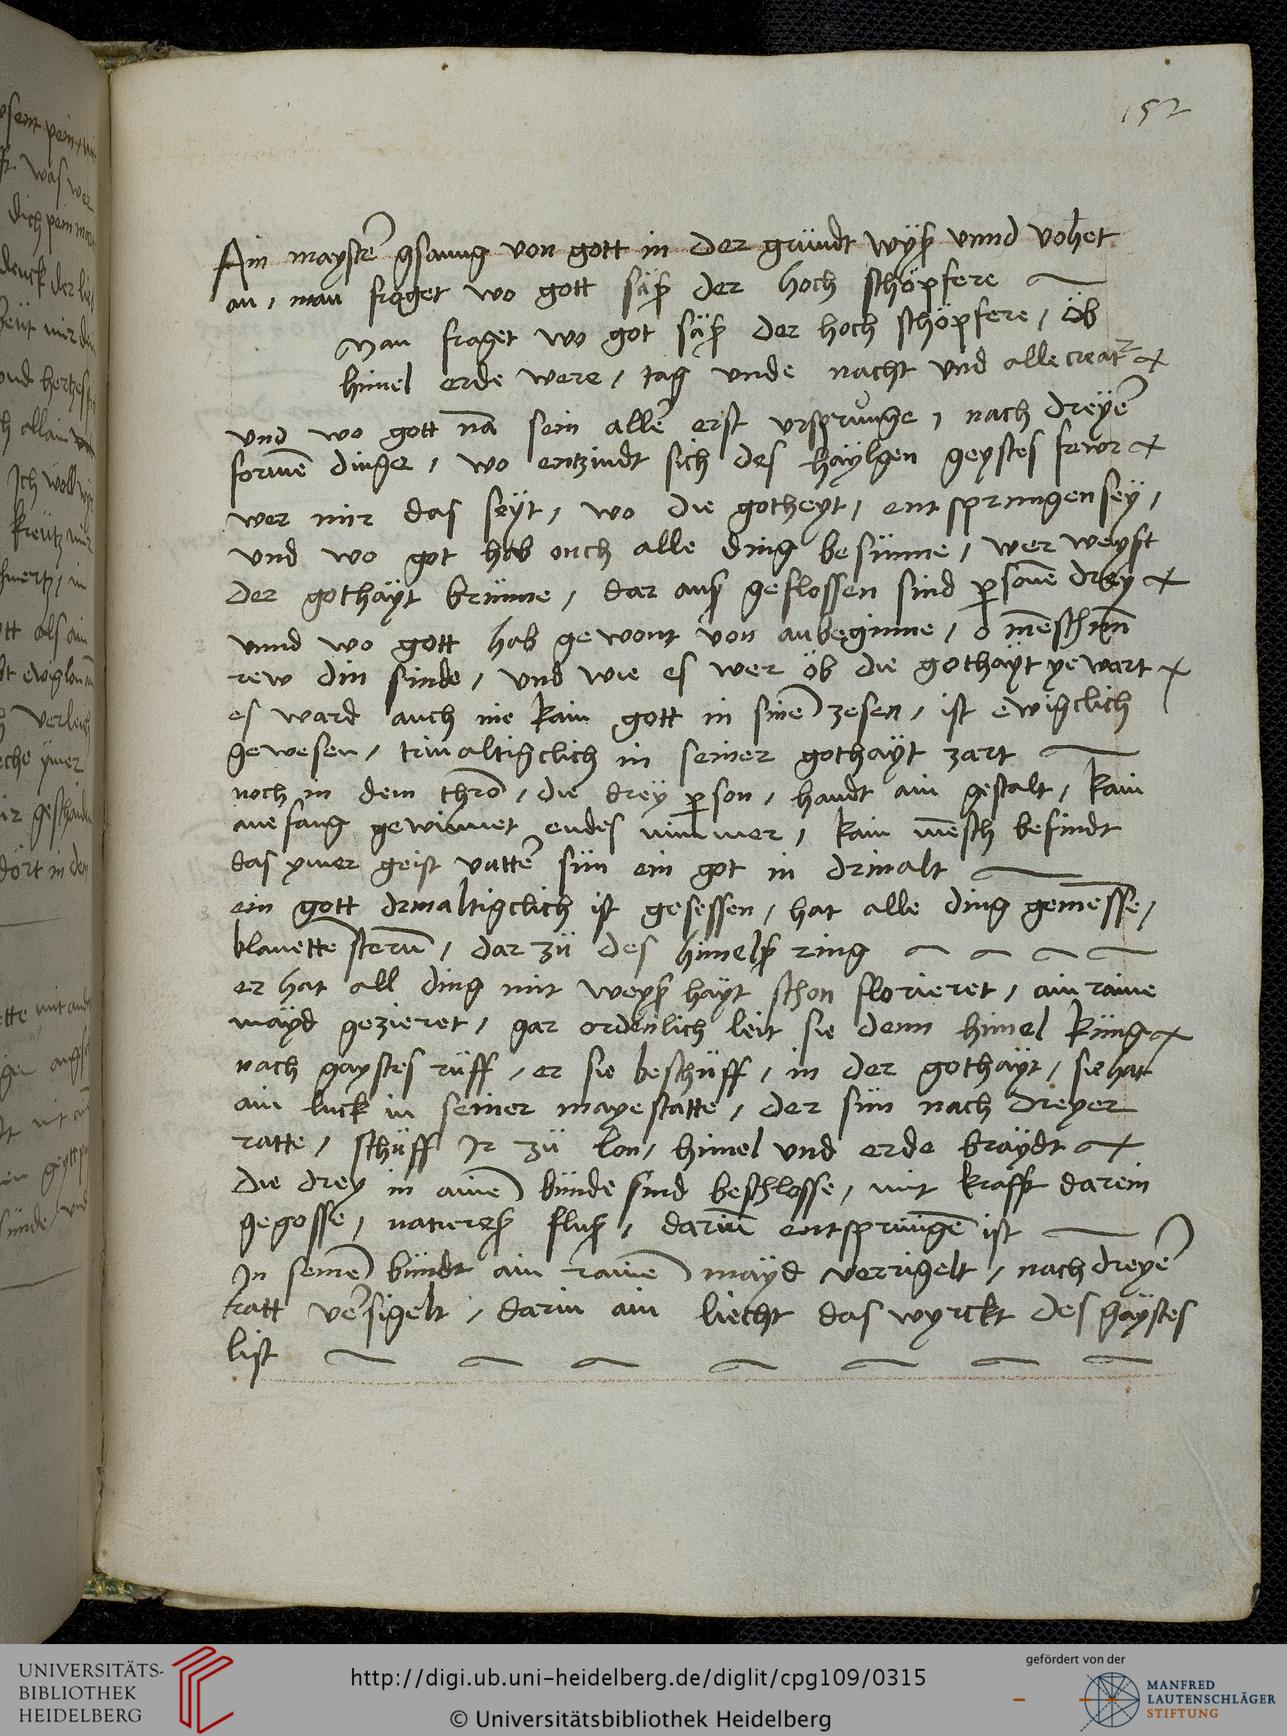 152
Ain mayster gsanng von gott in der gründt wyß vnnd vohet
an, man fraget wo gott säß der hoch schöpfere
Man fraget wo got säß der hoch schöpfere, öb
himel erde were, tag vnde nacht vnd alle creatur
vnd wo gott nā sein aller erst vrsprunge, nach dreyer
formē dinge, wo entzindt sich des haylgen geystes fewr
wer mir das seyt, wo die gotheyt, entsprungen sey,
vnd wo got hab ouch alle ding besünne, wer weyst
der gothayt brünne, dar auß geflossen sind personē drey
vnnd wo gott hab gewont von anbeginne, o mēsch
rew din sinde, vnd wie es wer öb die gothayt ye wart
es ward auch nie kain gott in sinē zesen, ist ewigclich
gewesen, trivaltigclich in seiner gothayt zart
noch in dem thrō, die drey person, handt ain gestalt, kain
anefang gewinnet endes nimmer, kain mēsch befindt
das ymer geist vatter sün ein got in drivalt
ein gott drivaltigclich ist gesessen, hat alle ding gemēsse,
blanette sternn, dar zü des himelß ring
er hat all ding mit weyß hayt schon florieret, ain raine
mayd gezieret, gar ordenlich leit sie denn himel küng
nach gaystes rüff, er sie beschüff, in der gothayt, sie hat
ain luck in seiner mayestatte, der sün nach dreyer
ratte, schüff Ir zü lon, himel vnd erde braydt
die drey in ainē bünde sind beschlosse, mit krafft darein
gegosse, natureß fluß, dariñ entsprungē ist
In seinē bündt ain rainē mayd verrigelt, nach dreyer
ratt versigelt, darin ain liecht das wyrckt des gaystes
list
UNIVERSITÄTS-
BIBLIOTHEK
HEIDELBERG
http://digi.ub.uni-heidelberg.de/diglit/cpg109/0315
© Universitätsbibliothek Heidelberg
gefördert von der
MANFRED
LAUTENSCHLÄGER
STIFTUNG